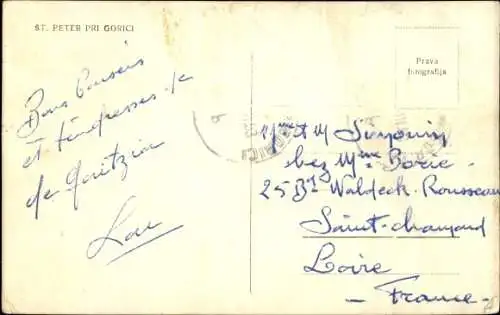 ST. PETER PRI GORICI
Prava
fotografija
Bons baisers
et tendresses de
de Goritzia
Lou
Mme et M
chez Mme Borie
25 Bd Waldeck-Rousseau
Saint-chamond
Loire
- France -